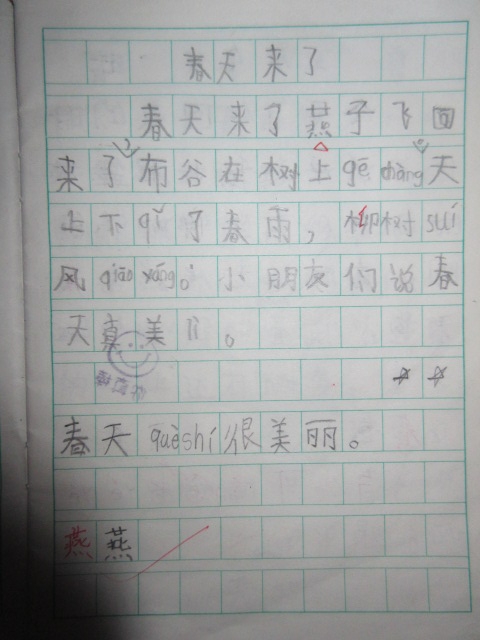 春天来了
春天来了燕子飞回
来了,布谷在树上gē chàng,天
上下qǐ了春雨,柳树suí
风qiāo yáng。小朋友们说春
天真美lì。
春天quèshí很美丽。
燕燕